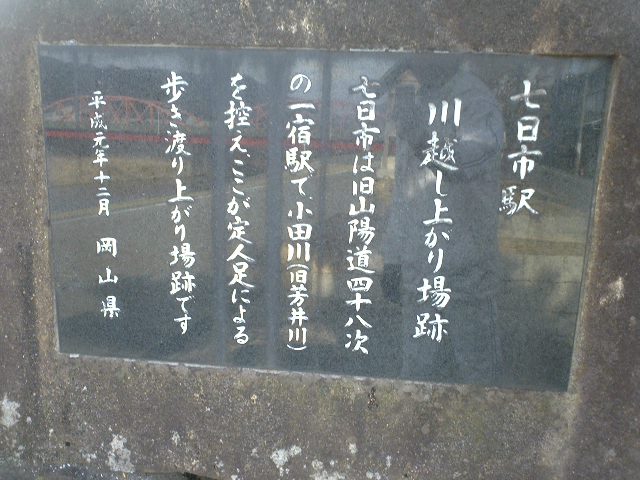 七日市駅
川越し上がり場跡
七日市は旧山陽道四十八次
の一宿駅で、小田川(旧芳井川)
を控え、ここが定人足による
歩き渡り上がり場跡です
平成元年十二月 岡山県